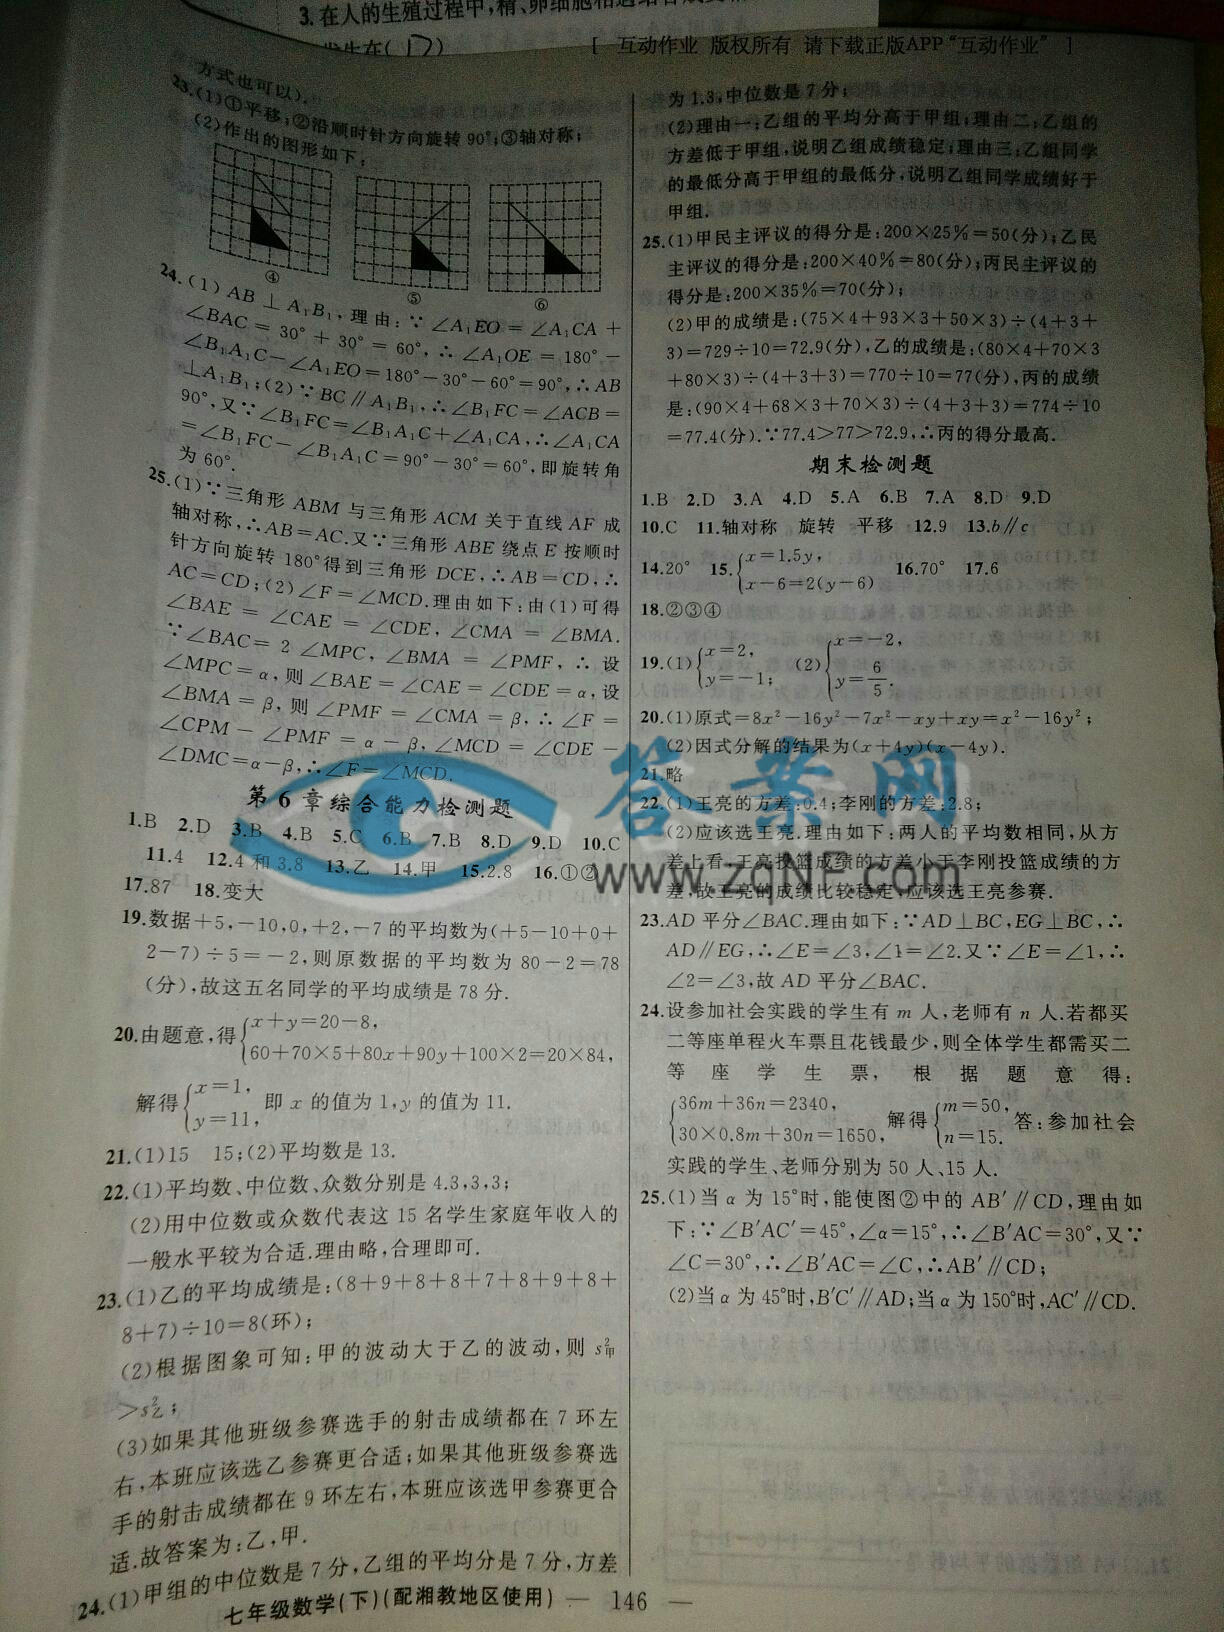 3.在人的生殖过程中,精、卵细胞相遇结合
发生在( D )
[ 互动作业 版权所有 请下载正版APP"互动作业" ]
方式也可以).
23.(1)①平移;②沿顺时针方向旋转 90°;③轴对称;
(2)作出的图形如下:
④
⑤
⑥
24.(1) AB ⊥ A₁B₁, 理由: ∵ ∠A₁EO = ∠A₁CA +
∠BAC = 30° + 30° = 60°, ∴ ∠A₁OE = 180° −
∠B₁A₁C−∠A₁EO=180°−30°−60°=90°,∴AB
⊥A₁B₁;(2)∵BC∥A₁B₁,∴∠B₁FC=∠ACB=
90°,又∵∠B₁FC=∠B₁A₁C+∠A₁CA,∴∠A₁CA
=∠B₁FC−∠B₁A₁C=90°−30°=60°,即旋转角
为 60°.
25.(1)∵三角形 ABM 与三角形 ACM 关于直线 AF 成
轴对称,∴AB=AC.又∵三角形 ABE 绕点 E 按顺时
针方向旋转 180°得到三角形 DCE,∴AB=CD,∴
AC=CD;(2)∠F=∠MCD.理由如下:由(1)可得
∠BAE = ∠CAE = ∠CDE, ∠CMA = ∠BMA.
∵∠BAC= 2 ∠MPC, ∠BMA = ∠PMF, ∴ 设
∠MPC=α,则∠BAE=∠CAE=∠CDE=α,设
∠BMA=β,则∠PMF=∠CMA=β,∴∠F=
∠CPM − ∠PMF = α − β, ∠MCD = ∠CDE −
∠DMC=α−β,∴∠F=∠MCD.
第 6 章综合能力检测题
1.B 2.D 3.B 4.B 5.C 6.B 7.B 8.D 9.D 10.C
11.4 12.4 和 3.8 13.乙 14.甲 15.2.8 16.①②
17.87 18.变大
19.数据+5,−10,0,+2,−7 的平均数为(+5−10+0+
2−7)÷5=−2,则原数据的平均数为 80−2=78
(分),故这五名同学的平均成绩是 78 分.
20.由题意,得{x+y=20−8,
60+70×5+80x+90y+100×2=20×84,
解得{x=1,
y=11, 即 x 的值为 1,y 的值为 11.
21.(1)15 15;(2)平均数是 13.
22.(1)平均数、中位数、众数分别是 4.3,3,3;
(2)用中位数或众数代表这 15 名学生家庭年收入的
一般水平较为合适.理由略,合理即可.
23.(1)乙的平均成绩是:(8+9+8+8+7+8+9+8+
8+7)÷10=8(环);
(2)根据图象可知:甲的波动大于乙的波动,则 s²甲
>s²乙;
(3)如果其他班级参赛选手的射击成绩都在 7 环左
右,本班应该选乙参赛更合适;如果其他班级参赛选
手的射击成绩都在 9 环左右,本班应该选甲参赛更合
适.故答案为:乙,甲.
24.(1)甲组的中位数是 7 分,乙组的平均分是 7 分,方差
为 1.3,中位数是 7 分;
(2)理由一:乙组的平均分高于甲组;理由二:乙组的
方差低于甲组,说明乙组成绩稳定;理由三:乙组同学
的最低分高于甲组的最低分,说明乙组同学成绩好于
甲组.
25.(1)甲民主评议的得分是:200×25%=50(分);乙民
主评议的得分是:200×40%=80(分);丙民主评议的
得分是:200×35%=70(分);
(2)甲的成绩是:(75×4+93×3+50×3)÷(4+3+
3)=729÷10=72.9(分),乙的成绩是:(80×4+70×3
+80×3)÷(4+3+3)=770÷10=77(分),丙的成绩
是:(90×4+68×3+70×3)÷(4+3+3)=774÷10
=77.4(分).∵77.4>77>72.9,∴丙的得分最高.
期末检测题
1.B 2.D 3.A 4.D 5.A 6.B 7.A 8.D 9.D
10.C 11.轴对称 旋转 平移 12.9 13.b∥c
14.20° 15.{x=1.5y,
x−6=2(y−6) 16.70° 17.6
18.②③④
19.(1){x=2,
y=−1; (2){x=−2,
y=6/5.
20.(1)原式=8x²−16y²−7x²−xy+xy=x²−16y²;
(2)因式分解的结果为(x+4y)(x−4y).
21.略
22.(1)王亮的方差:0.4;李刚的方差:2.8;
(2)应该选王亮.理由如下:两人的平均数相同,从方
差上看,王亮投篮成绩的方差小于李刚投篮成绩的方
差,故王亮的成绩比较稳定,应该选王亮参赛.
23.AD 平分∠BAC.理由如下:∵AD⊥BC,EG⊥BC,∴
AD∥EG,∴∠E=∠3,∠1=∠2.又∵∠E=∠1,∴
∠2=∠3,故 AD 平分∠BAC.
24.设参加社会实践的学生有 m 人,老师有 n 人.若都买
二等座单程火车票且花钱最少,则全体学生都需买二
等座学生票,根据题意得:
{36m+36n=2340,
30×0.8m+30n=1650, 解得{m=50,
n=15. 答:参加社会
实践的学生、老师分别为 50 人、15 人.
25.(1)当 α 为 15°时,能使图②中的 AB′∥CD,理由如
下:∵∠B′AC′=45°,∠α=15°,∴∠B′AC=30°,又∵
∠C=30°,∴∠B′AC=∠C,∴AB′∥CD;
(2)当 α 为 45°时,B′C′∥AD;当 α 为 150°时,AC′∥CD.
七年级数学(下)(配湘教地区使用) — 146 —
答案网
www.zqnf.com